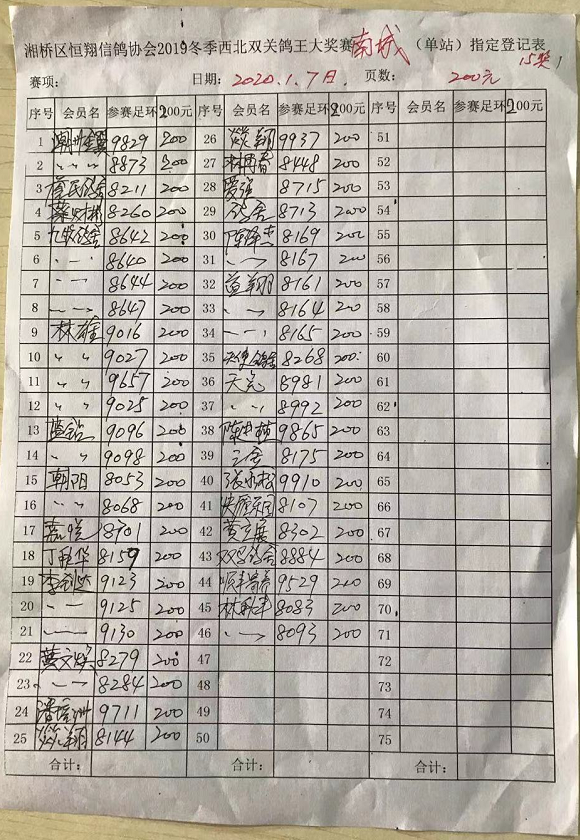 湘桥区恒翔信鸽协会2019冬季西北双关鸽王大奖赛南城（单站）指定登记表
15奖
赛项： 日期：2020.1.7日. 页数： 200元
序号 会员名 参赛足环 200元 序号 会员名 参赛足环 200元 序号 会员名 参赛足环 200元
1 9829 200 26 焱翔 9937 200 51
2 〃 〃 〃 8873 200 27 8448 200 52
3 8211 200 28 8715 200 53
4 8260 200 29 8713 200 54
5 8642 200 30 陈泽杰 8169 200 55
6 8640 200 31 8167 200 56
7 8644 200 32 8161 200 57
8 8647 200 33 8164 200 58
9 林雄 9016 200 34 8165 200 59
10 〃 〃 9027 200 35 天使鸽舍 8268 200 60
11 〃 〃 9657 200 36 8981 200 61
12 〃 〃 9025 200 37 〃 〃 8992 200 62
13 9096 200 38 9865 200 63
14 〃 〃 9098 200 39 8175 200 64
15 朝阳 8053 200 40 9910 200 65
16 〃 〃 8068 200 41 8107 200 66
17 8701 200 42 8302 200 67
18 8159 200 43 8884 200 68
19 9123 200 44 9529 200 69
20 9125 200 45 8083 200 70
21 9130 200 46 8093 200 71
22 黄文焕 8279 200 47 72
23 8284 200 48 73
24 9711 200 49 74
25 焱翔 8144 200 50 75
合计： 合计： 合计：